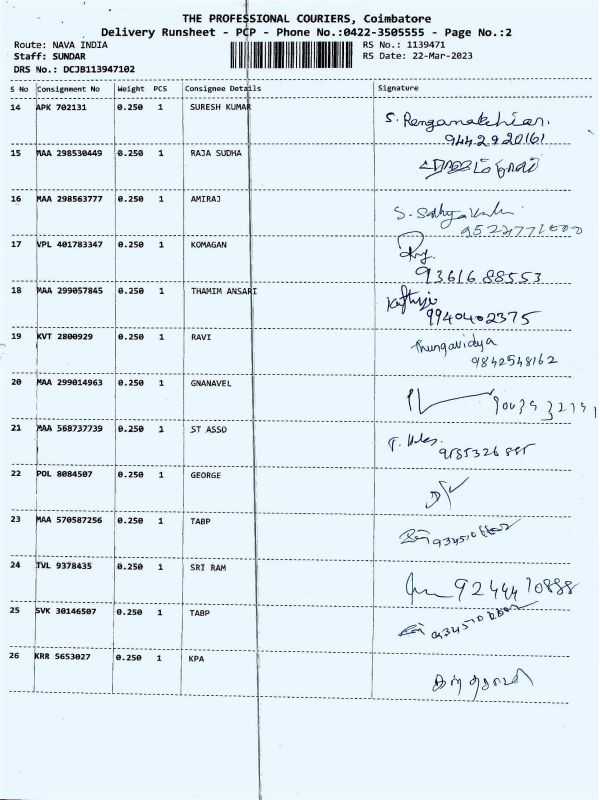 THE PROFESSIONAL COURIERS, Coimbatore
Delivery Runsheet - PCP - Phone No.:0422-3505555 - Page No.:2
Route: NAVA INDIA RS No.: 1139471
Staff: SUNDAR RS Date: 22-Mar-2023
DRS No.: DCJB113947102
S No Consignment No Weight PCS Consignee Details Signature
14 APK 702131 0.250 1 SURESH KUMAR
9442920161
15 MAA 298530449 0.250 1 RAJA SUDHA
16 MAA 298563777 0.250 1 AMIRAJ
17 VPL 401783347 0.250 1 KOMAGAN
9361688553
18 MAA 299057845 0.250 1 THAMIM ANSARI
9940402375
19 KVT 2800929 0.250 1 RAVI Thungavidya
9842548162
20 MAA 299014963 0.250 1 GNANAVEL
21 MAA 568737739 0.250 1 ST ASSO
22 POL 8084507 0.250 1 GEORGE
23 MAA 570587256 0.250 1 TABP
24 TVL 9378435 0.250 1 SRI RAM
25 SVK 30146507 0.250 1 TABP
26 KRR 5653027 0.250 1 KPA